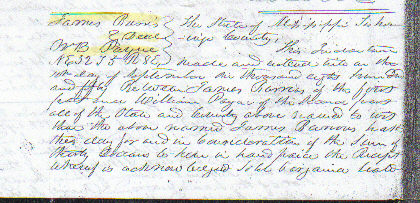 James Parris } The State of Mississippi Tishom
& Deed } -ingo County
W B Payne } This Indenture
NE 32 T5 R8E made and entered into on the
1st day of September one thousand eight hundred
and fifty Between James Parris of the first
part and William Payne of the second part
all of the State and County above named to wit
that the above named James Parrous hath
this day for and in Consideration of the Sum of
thirty Dollars to him in hand paid the Receipt
whereof is acknowledged doth bargained